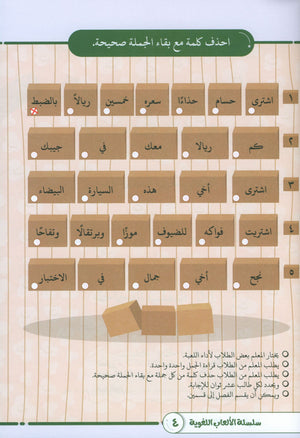 احذف كلمة مع بقاء الجملة صحيحة.
١ اشترى حسام حذاءً سعره خمسين ريالاً بالضبط
٢ كم ريالا معك في جيبك
٣ اشترى أخي هذه السيارة البيضاء
٤ اشتريت فواكه للضيوف موزًا وبرتقالًا وتفاحًا
٥ نجح أخي جمال في الاختبار
يختار المعلم بعض الطلاب لأداء اللعبة.
يطلب المعلم من الطلاب قراءة الجمل واحدة واحدة.
يطلب المعلم من الطلاب حذف كلمة من كل جملة مع بقاء الجملة صحيحة.
ويحدد لكل طالب عشر ثوان للإجابة.
ويمكن أن يقسم الفصل إلى قسمين.
سلسلة الألعاب اللغوية ٤